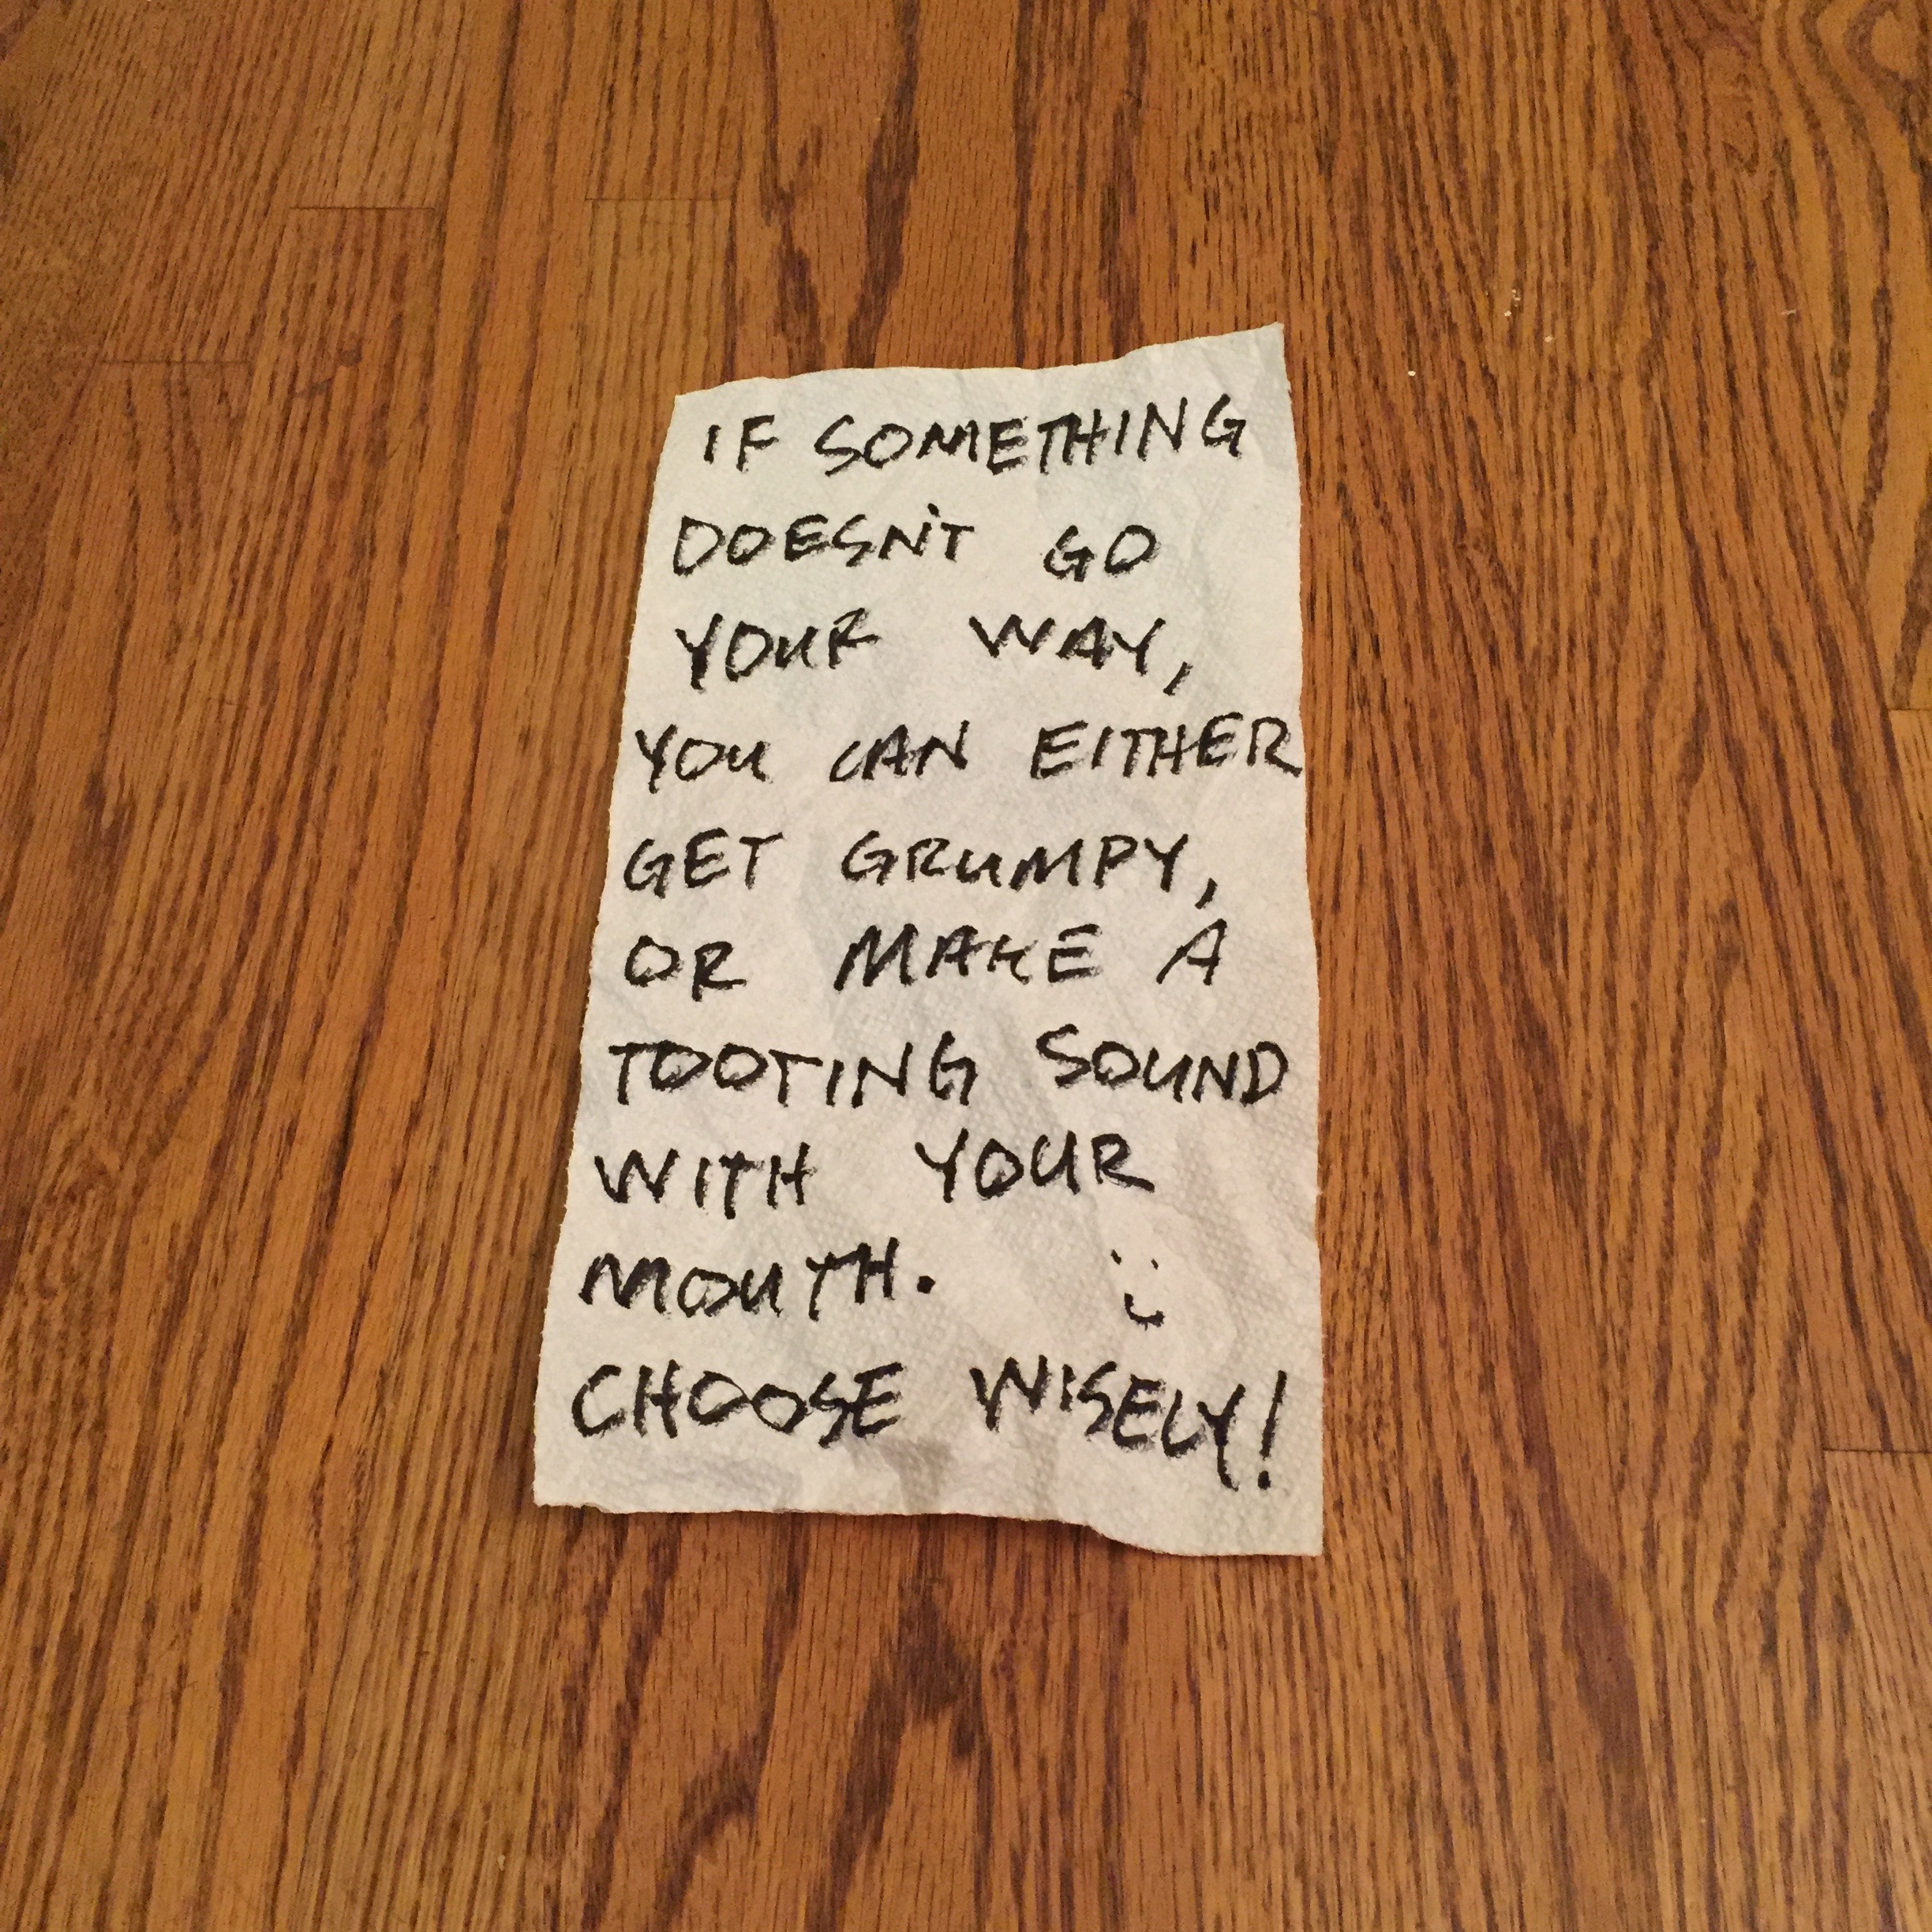 IF SOMETHING
DOESN'T GO
YOUR WAY,
YOU CAN EITHER
GET GRUMPY,
OR MAKE A
TOOTING SOUND
WITH YOUR
MOUTH. :)
CHOOSE WISELY!